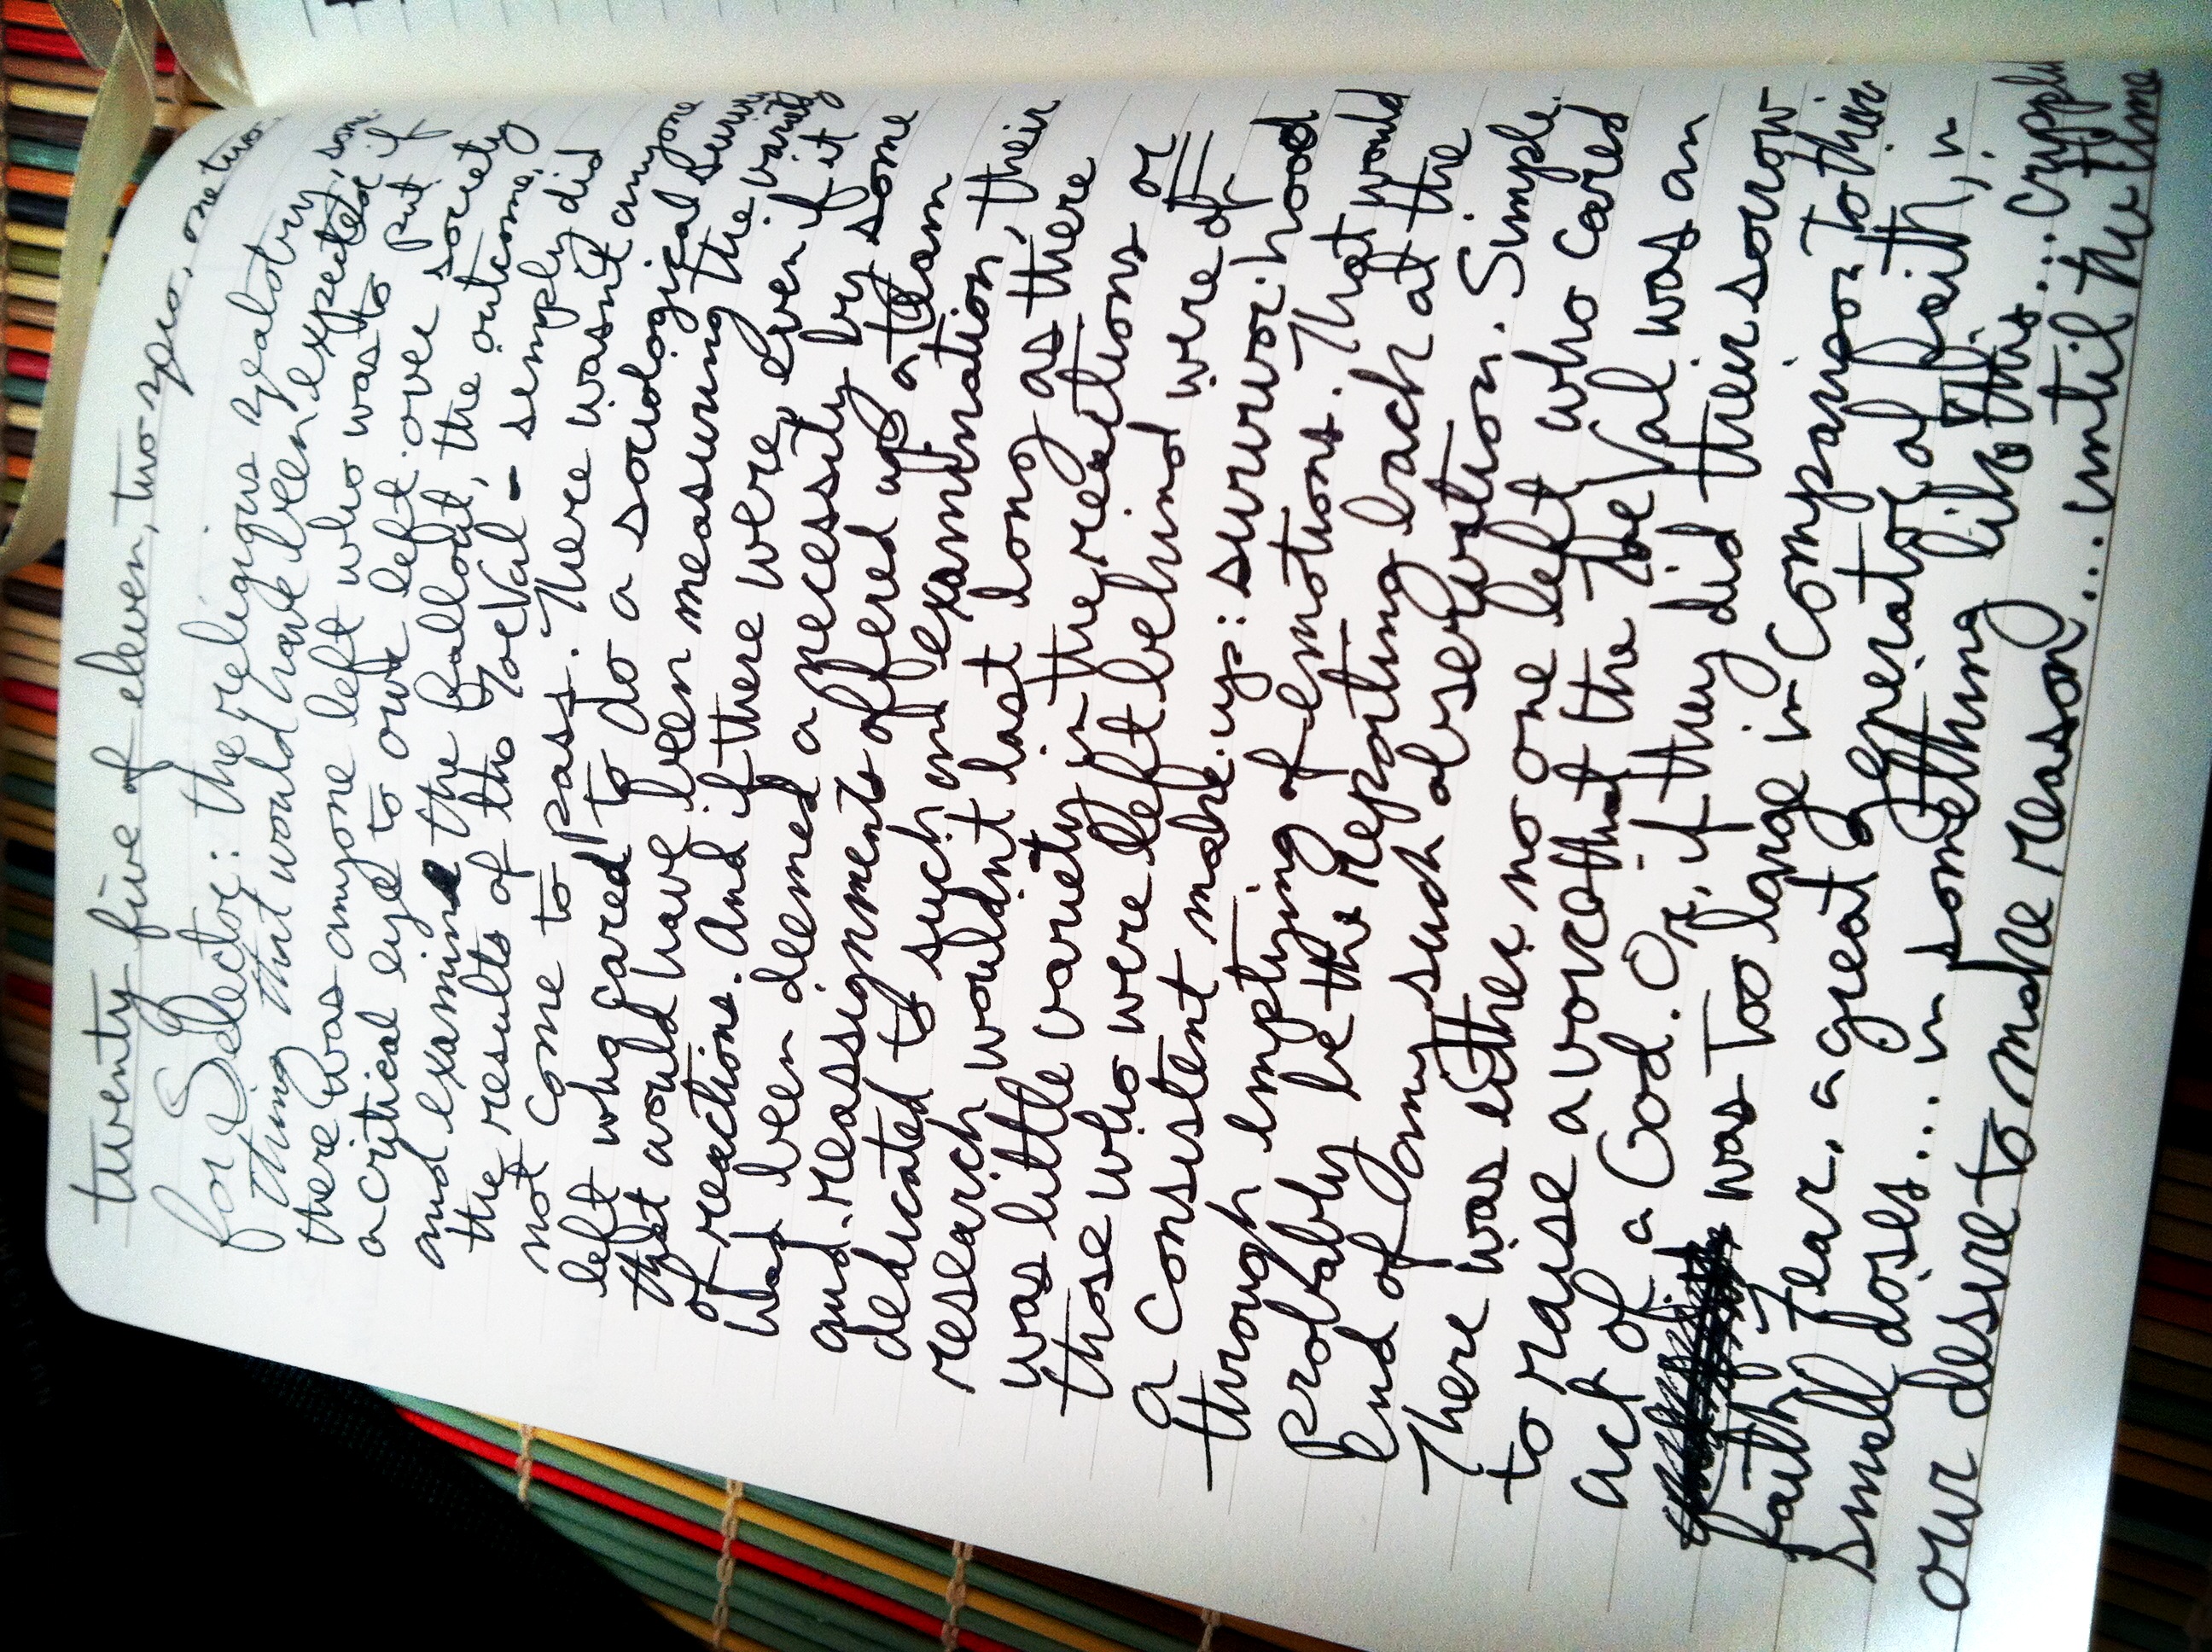 twenty five of eleven, two zero, one two.
for Selector: the religious zealotry, some
thing that would have been expected if
there was anyone left who was to put
a critical eye to our left.over society
and examine the fallout, the outcome,
the results of the ToeVal - simply did
not come to pass. There wasn't anyone
left who cared to do a sociological survey
that would have been measuring the variety
of reactions. And if there were, even if it
had been deemed a necessity by some
and.reassignments offered up a team
dedicated to such and examination, their
research wouldn't last long as there
was little variety in the reactions or
those who were left behind were of
a consistent make.up: survivor.hood
through emptying of emotions. That would
probably be the reporting back at the
end of any such observation. Simple.
There was either no one left who cared
to raise a voice that the ToeVal was an
act of a God. Or, if they did their sorrow
was too large in comparison to their
faith. Fear, a great generator of faith, in
small doses... in something like this... cripples
our desire to make reason... until the time